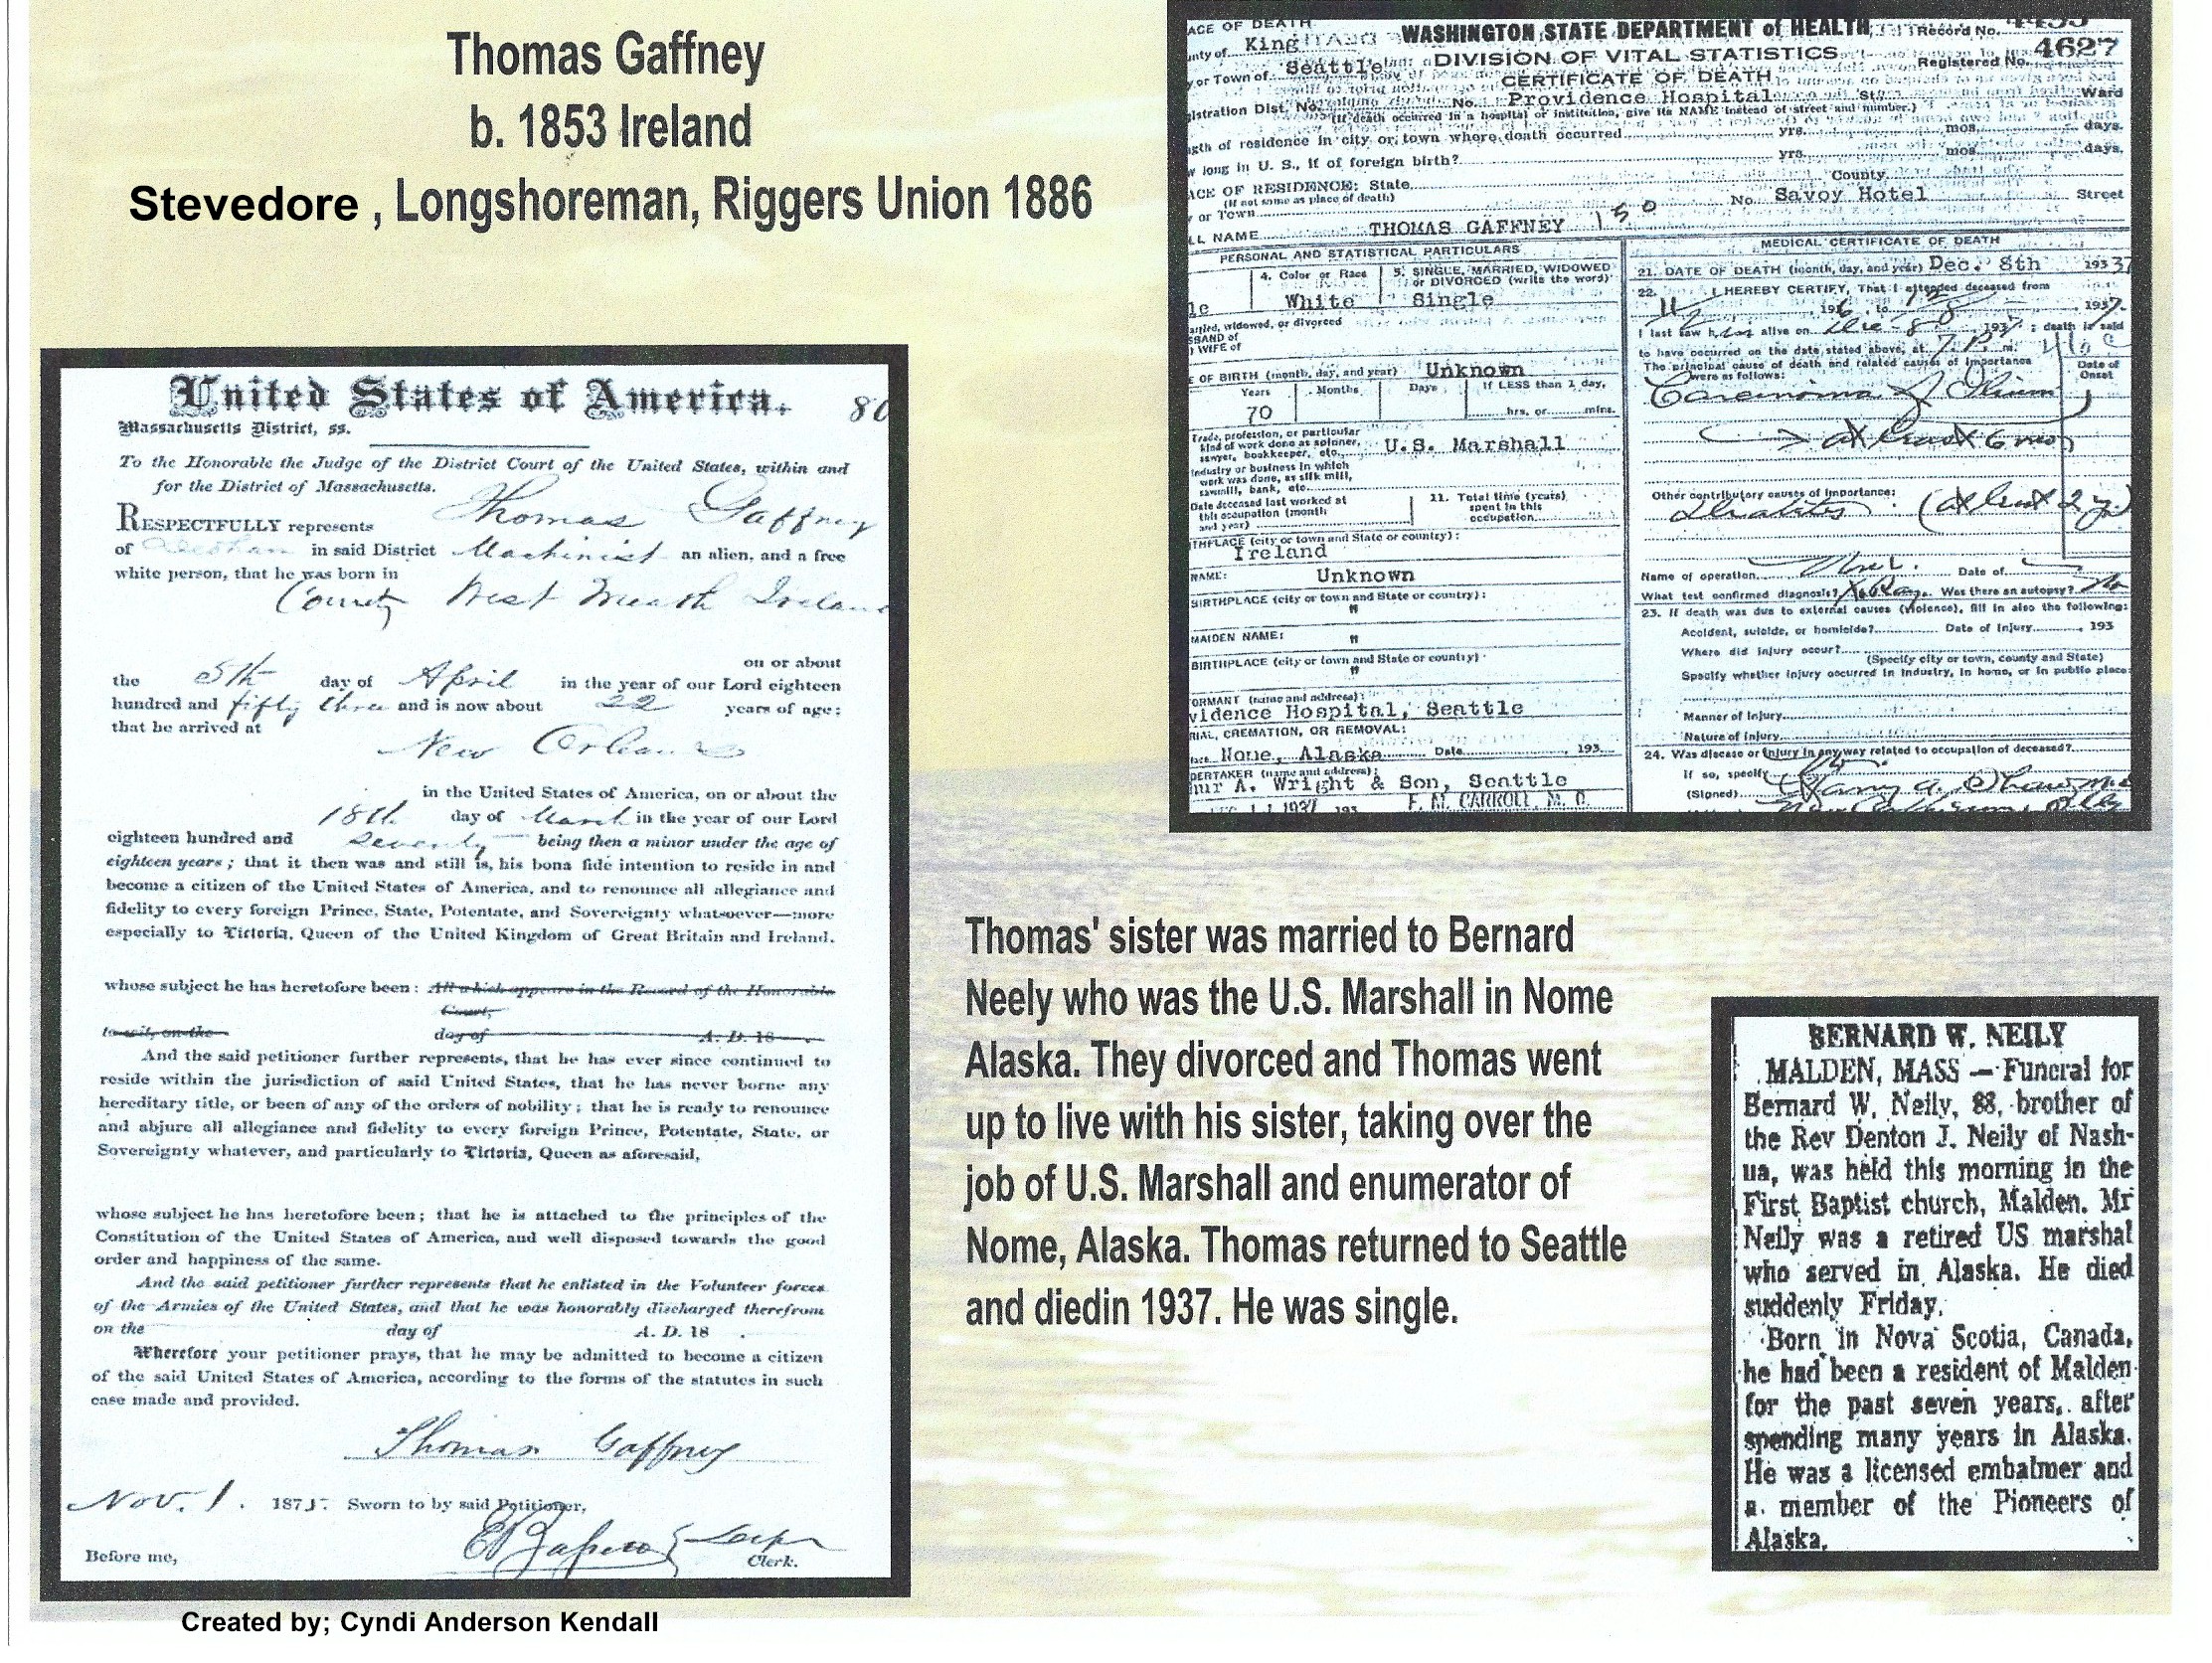 Thomas Gaffney
b. 1853 Ireland
Stevedore , Longshoreman, Riggers Union 1886
United States of America.
80
Massachusetts District, ss.
To the Honorable the Judge of the District Court of the United States, within and
for the District of Massachusetts.
RESPECTFULLY represents Thomas Gaffney
of in said District Machinist an alien, and a free
white person, that he was born in
County West Meath Ireland
on or about
the 5th day of April in the year of our Lord eighteen
hundred and fifty three and is now about 22 years of age;
that he arrived at
New Orleans
in the United States of America, on or about the
18th day of March in the year of our Lord
eighteen hundred and Seventy being then a minor under the age of
eighteen years; that it then was and still is, his bona fide intention to reside in and
become a citizen of the United States of America, and to renounce all allegiance and
fidelity to every foreign Prince, State, Potentate, and Sovereignty whatsoever—more
especially to Victoria, Queen of the United Kingdom of Great Britain and Ireland.
whose subject he has heretofore been: All which appears in the Record of the Honorable
Court,
to wit, on the day of A. D. 18 .
And the said petitioner further represents, that he has ever since continued to
reside within the jurisdiction of said United States, that he has never borne any
hereditary title, or been of any of the orders of nobility; that he is ready to renounce
and abjure all allegiance and fidelity to every foreign Prince, Potentate, State, or
Sovereignty whatever, and particularly to Victoria, Queen as aforesaid,
whose subject he has heretofore been; that he is attached to the principles of the
Constitution of the United States of America, and well disposed towards the good
order and happiness of the same.
And the said petitioner further represents that he enlisted in the Volunteer forces
of the Armies of the United States, and that he was honorably discharged therefrom
on the day of A. D. 18 .
Wherefore your petitioner prays, that he may be admitted to become a citizen
of the said United States of America, according to the forms of the statutes in such
case made and provided.
Thomas Gaffney
Nov. 1. 1875. Sworn to by said Petitioner,
Before me,
Clerk.
Created by; Cyndi Anderson Kendall
ACE OF DEATH
WASHINGTON STATE DEPARTMENT of HEALTH
Record No.
unty of King
DIVISION OF VITAL STATISTICS
Registered No. 4627
y or Town of Seattle
CERTIFICATE OF DEATH
gistration Dist. No. No. Providence Hospital St. Ward
(If death occurred in a hospital or institution, give its NAME instead of street and number.)
ngth of residence in city or town where death occurred yrs. mos. days.
w long in U. S., if of foreign birth? yrs. mos. days.
ACE OF RESIDENCE: State County
(If not same as place of death)
y or Town No. Savoy Hotel Street
LL NAME THOMAS GAFFNEY 150
PERSONAL AND STATISTICAL PARTICULARS
4. Color or Race
White
5. SINGLE, MARRIED, WIDOWED
or DIVORCED (write the word)
Single
le
arried, widowed, or divorced
SBAND of
) WIFE of
E OF BIRTH (month, day, and year) Unknown
Years Months Days If LESS than 1 day,
70 hrs. or mins.
Trade, profession, or particular
kind of work done as spinner,
sawyer, bookkeeper, etc. U.S. Marshall
Industry or business in which
work was done, as silk mill,
sawmill, bank, etc.
Date deceased last worked at
this occupation (month
and year)
11. Total time (years)
spent in this
occupation
THPLACE (city or town and State or country):
Ireland
NAME: Unknown
BIRTHPLACE (city or town and State or country):
"
MAIDEN NAME: "
BIRTHPLACE (city or town and State or country)
"
ORMANT (name and address):
vidence Hospital, Seattle
RIAL, CREMATION, OR REMOVAL:
None, Alaska Date 193
DERTAKER (name and address):
hur A. Wright & Son, Seattle
1937 193 F. M. CARROLL, M. D.
MEDICAL CERTIFICATE OF DEATH
21. DATE OF DEATH (month, day, and year) Dec. 8th 1937
22. I HEREBY CERTIFY, That I attended deceased from
, to , 1937.
I last saw him alive on Dec 8th 1937; death is said
to have occurred on the date stated above, at 7 P. m.
The principal cause of death and related causes of importance
were as follows:
Date of
Onset
Carcinoma of Ilium
at least 6 mos
Other contributory causes of importance:
Diabetes (at least 2 y)
Name of operation Date of
What test confirmed diagnosis? X-Ray. Was there an autopsy? No
23. If death was due to external causes (violence), fill in also the following:
Accident, suicide, or homicide? Date of Injury , 193
Where did injury occur?
(Specify city or town, county and State)
Specify whether injury occurred in industry, in home, or in public place:
Manner of Injury
Nature of Injury
24. Was disease or injury in any way related to occupation of deceased?
If so, specify
(Signed)
Thomas' sister was married to Bernard
Neely who was the U.S. Marshall in Nome
Alaska. They divorced and Thomas went
up to live with his sister, taking over the
job of U.S. Marshall and enumerator of
Nome, Alaska. Thomas returned to Seattle
and diedin 1937. He was single.
BERNARD W. NEILY
MALDEN, MASS — Funeral for
Bernard W. Neily, 88, brother of
the Rev Denton J. Neily of Nash-
ua, was held this morning in the
First Baptist church, Malden. Mr
Neily was a retired US marshal
who served in Alaska. He died
suddenly Friday.
Born in Nova Scotia, Canada,
he had been a resident of Malden
for the past seven years, after
spending many years in Alaska.
He was a licensed embalmer and
a member of the Pioneers of
Alaska.